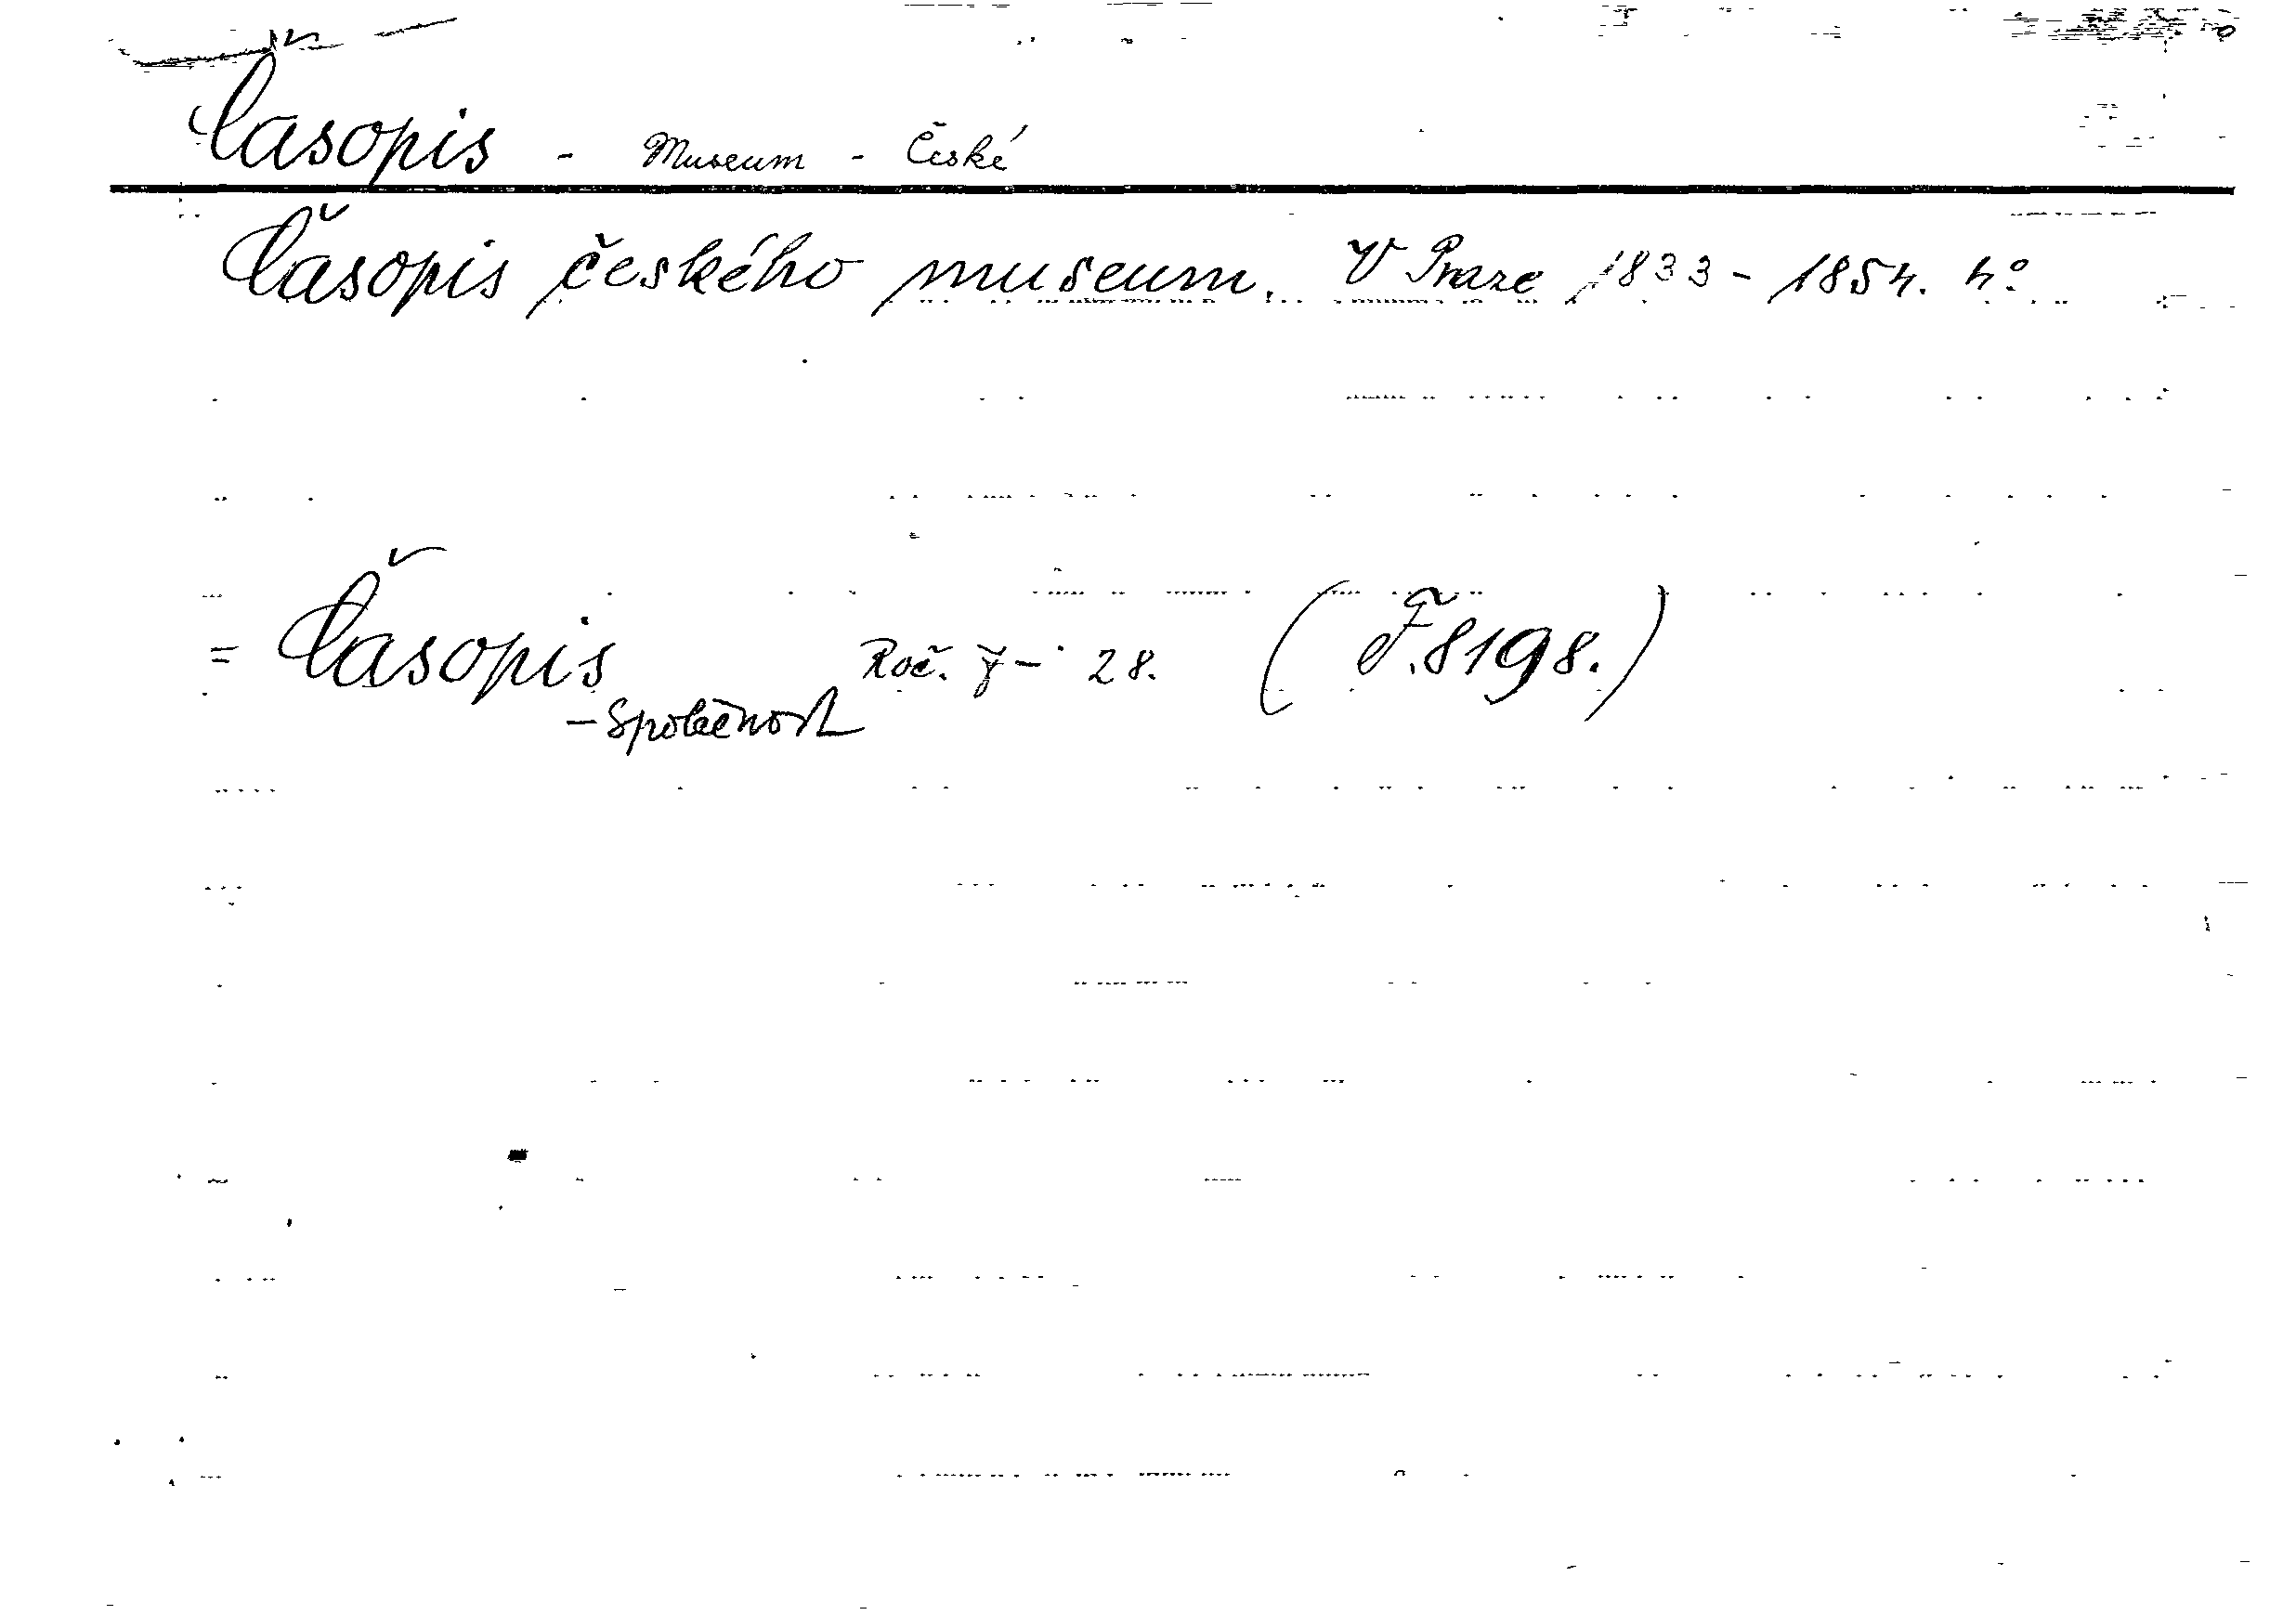 Časopis - Museum - České
Časopis českého museum. V Praze 1833 - 1854. 4°.
= Časopis Roč. 7 - 28. (F.8198.)
- Společnost